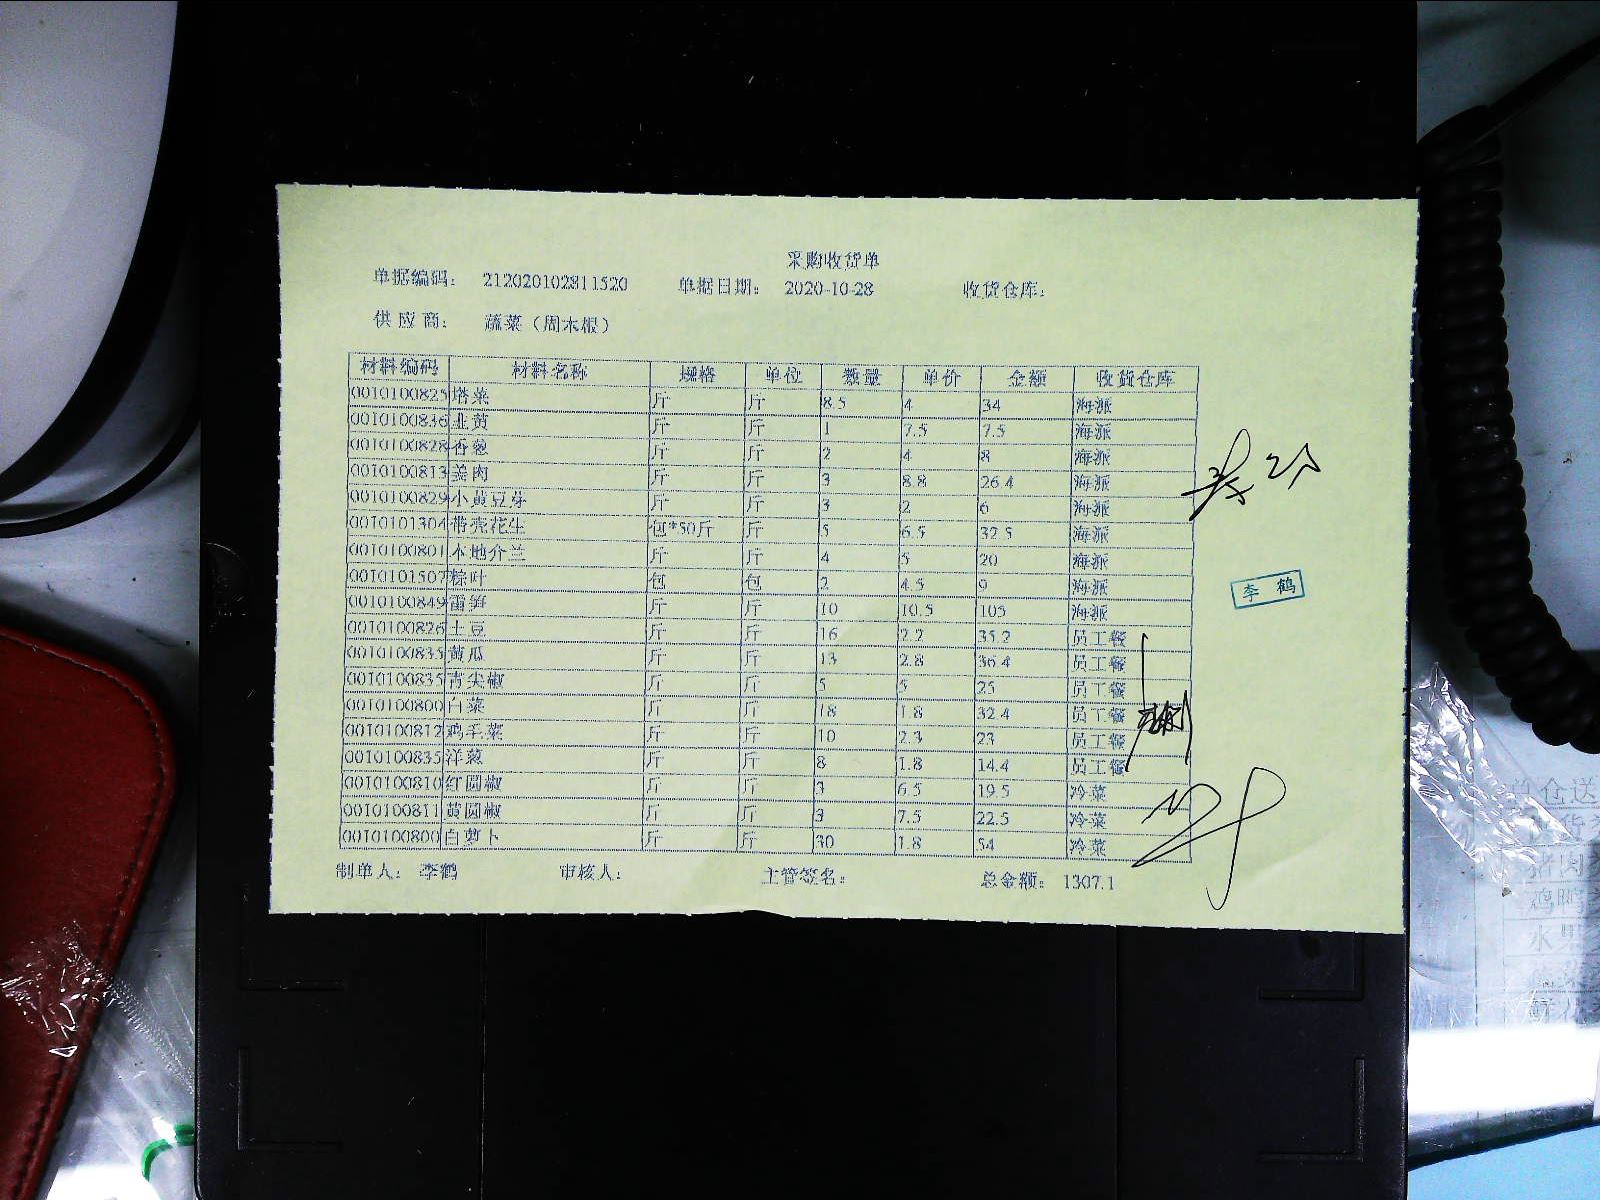 采购收货单
单据编码： 212020102811520 单据日期： 2020-10-28 收货仓库：
供应商： 蔬菜（周木根）
材料编码 材料名称 规格 单位 数量 单价 金额 收货仓库
0010100825 塔菜 斤 斤 8.5 4 34 海派
0010100836 韭黄 斤 斤 1 7.5 7.5 海派
0010100828 香葱 斤 斤 2 4 8 海派
0010100813 姜肉 斤 斤 3 8.8 26.4 海派
0010100829 小黄豆芽 斤 斤 3 2 6 海派
0010101304 带壳花生 包*50斤 斤 5 6.5 32.5 海派
0010100801 本地介兰 斤 斤 4 5 20 海派
0010101507 粽叶 包 包 2 4.5 9 海派
0010100849 雷笋 斤 斤 10 10.5 105 海派
0010100826 土豆 斤 斤 16 2.2 35.2 员工餐
0010100835 黄瓜 斤 斤 13 2.8 36.4 员工餐
0010100835 青尖椒 斤 斤 5 5 25 员工餐
0010100800 白菜 斤 斤 18 1.8 32.4 员工餐
0010100812 鸡毛菜 斤 斤 10 2.3 23 员工餐
0010100835 洋葱 斤 斤 8 1.8 14.4 员工餐
0010100810 红圆椒 斤 斤 3 6.5 19.5 冷菜
0010100811 黄圆椒 斤 斤 3 7.5 22.5 冷菜
0010100800 白萝卜 斤 斤 30 1.8 54 冷菜
制单人： 李鹤 审核人： 主管签名： 总金额： 1307.1
李 鹤